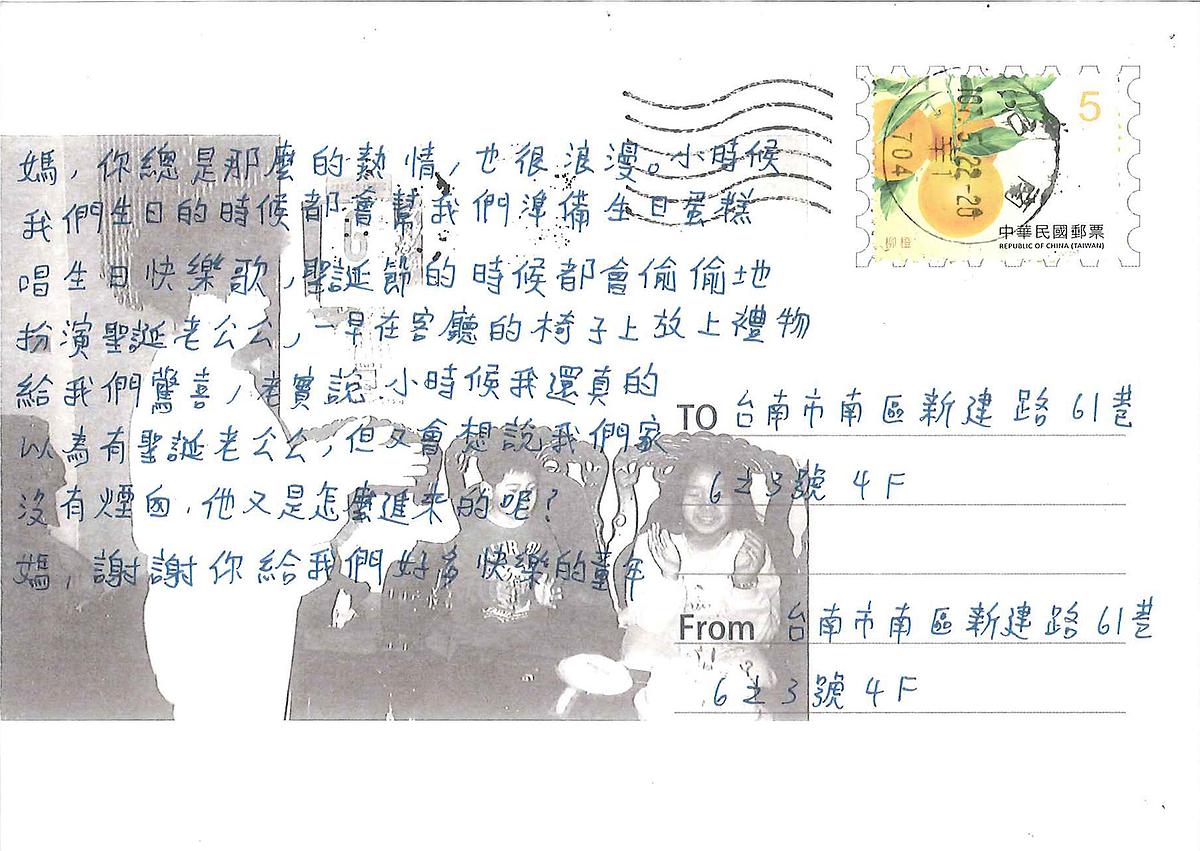 媽，你總是那麼的熱情，也很浪漫。小時候
我們生日的時候都會幫我們準備生日蛋糕
唱生日快樂歌，聖誕節的時候都會偷偷地
扮演聖誕老公公，一早在客廳的椅子上放上禮物
給我們驚喜，老實說，小時候我還真的
以為有聖誕老公公，但又會想說我們家
沒有煙囪，他又是怎麼進來的呢？
媽，謝謝你給我們好多快樂的童年
5
柳橙
中華民國郵票
REPUBLIC OF CHINA (TAIWAN)
704
TO 台南市南區新建路61巷
6之3號4F
From 台南市南區新建路61巷
6之3號4F